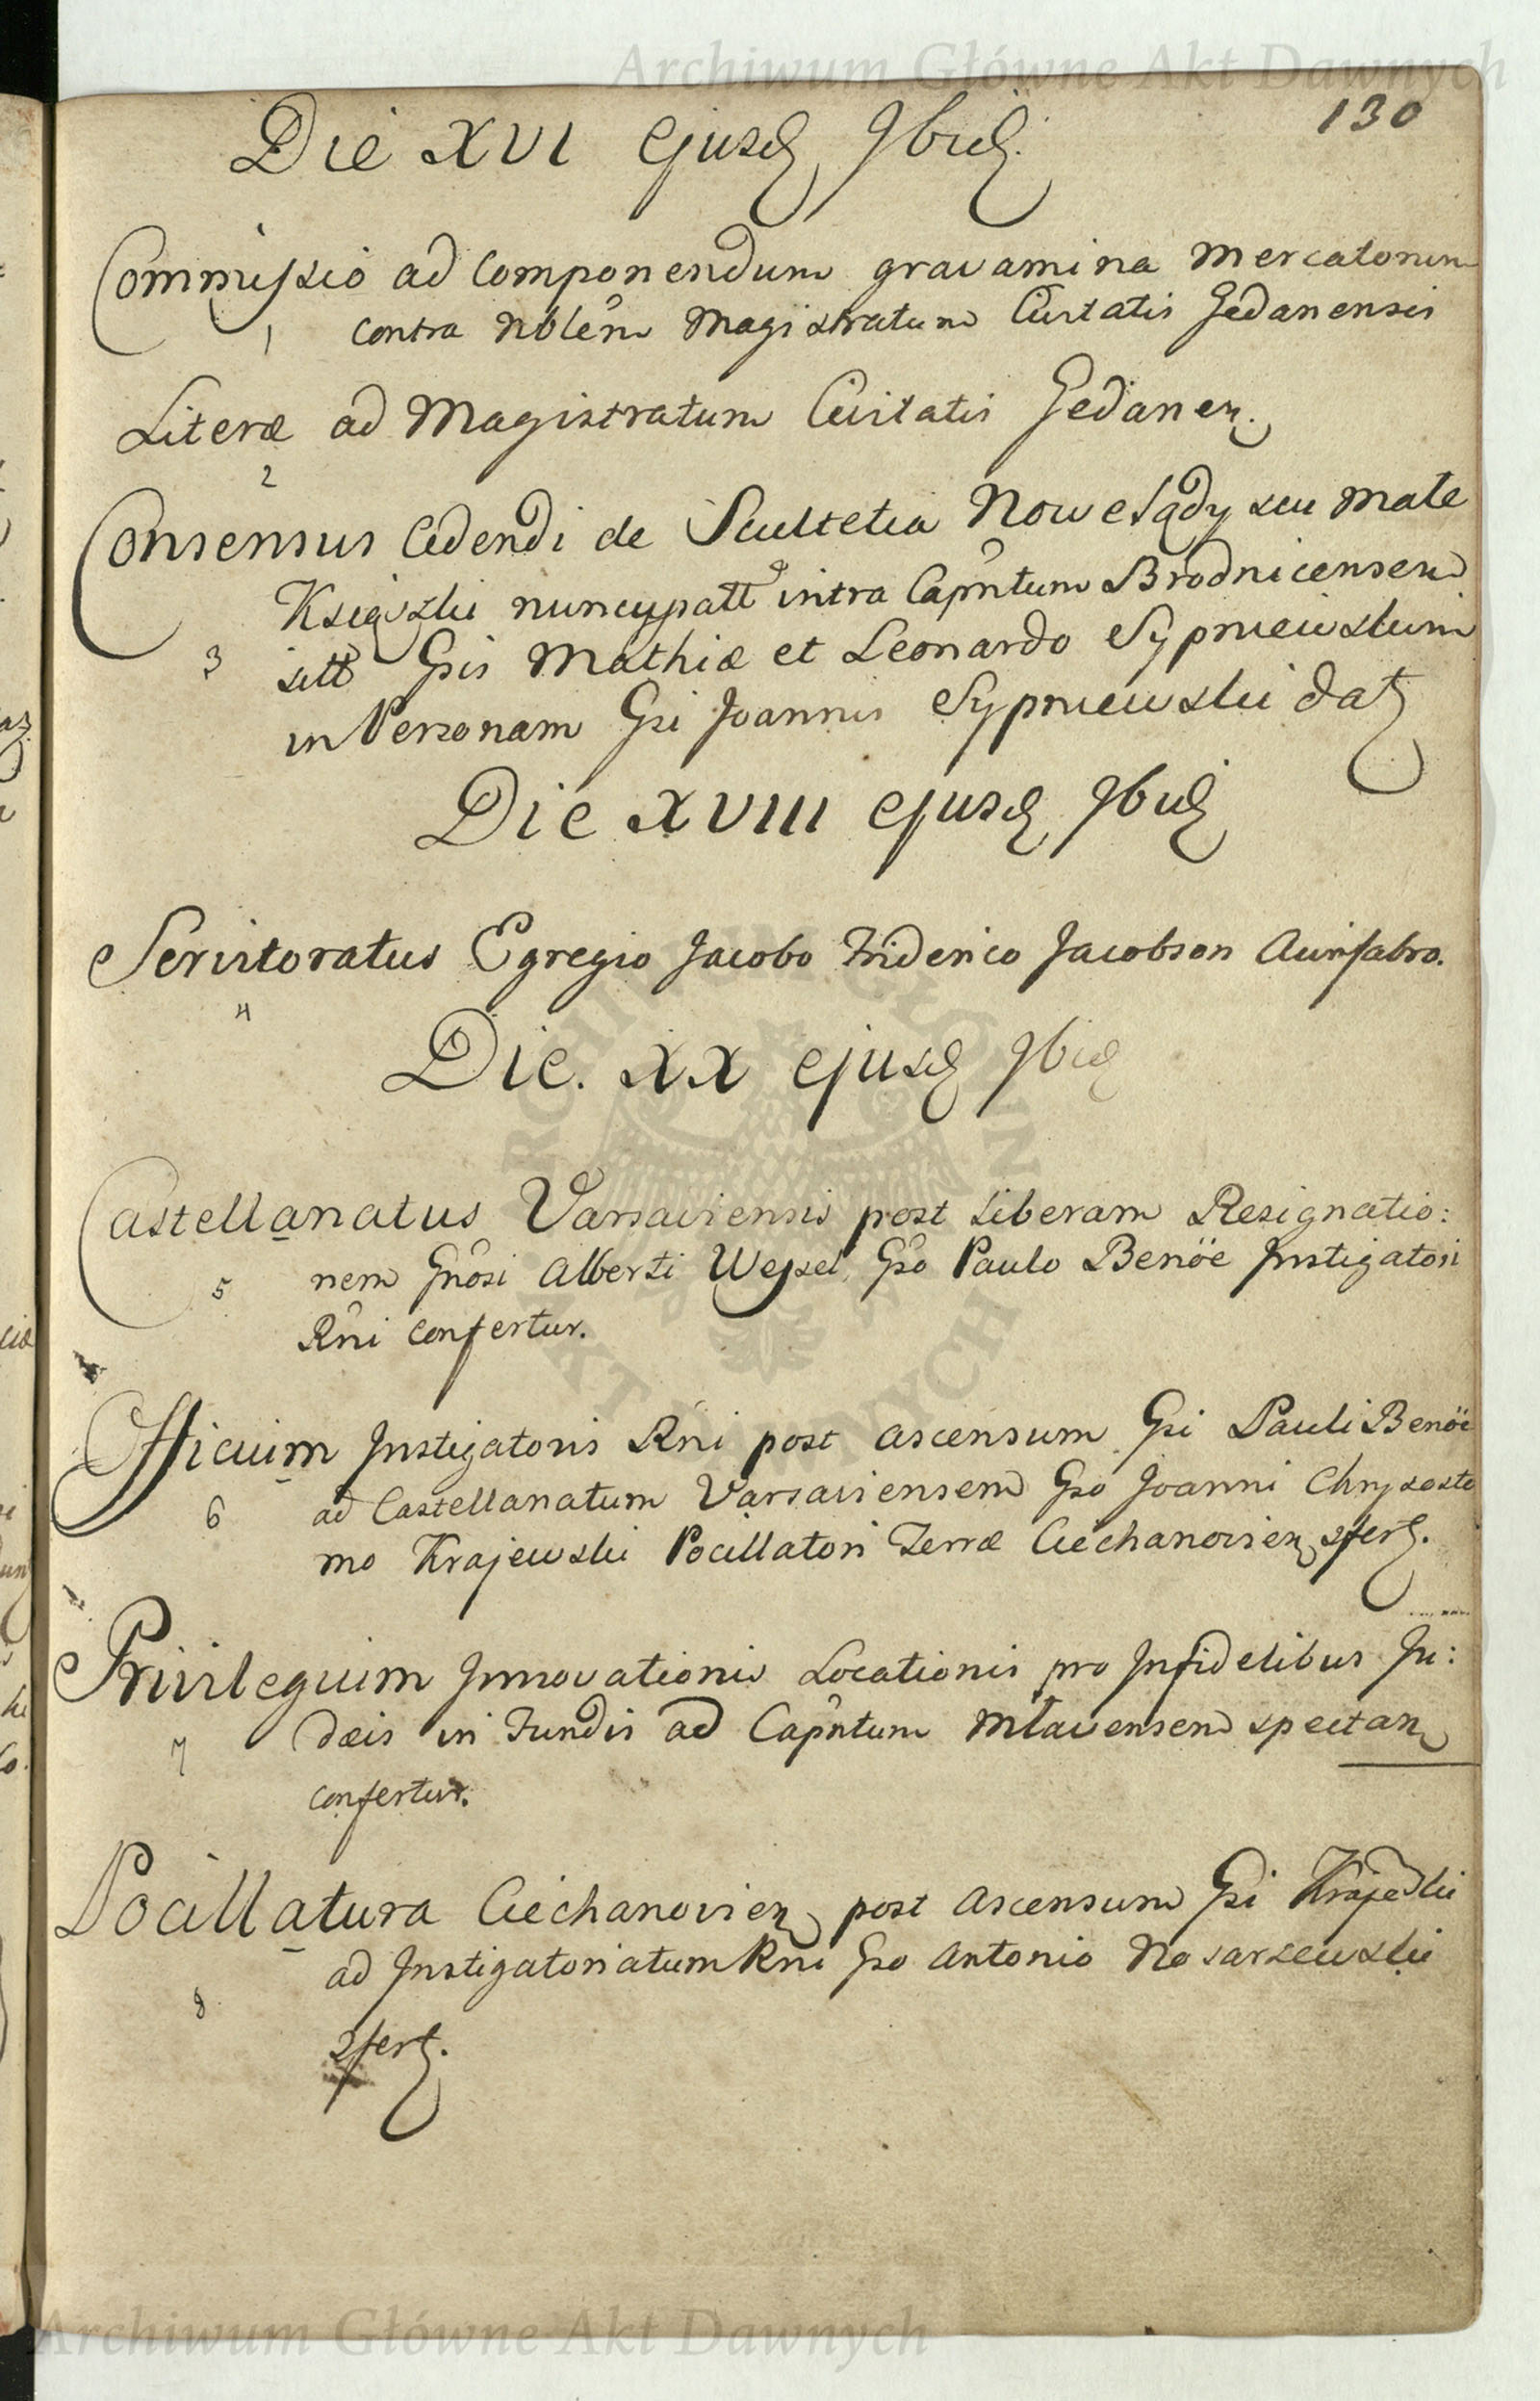 Archiwum Główne Akt Dawnych
130
Die XVI ejusd 9brid.
Commissio ad Componendum gravamina Mercatorum
1 contra Nblem Magistratum Civitatis Gedanensis
Literæ ad Magistratum Civitatis Gedanen.
2
Consensus Cedendi de Scultetia Nowe Sądy seu Małe
Książki nuncupatt intra Capntum Brodnicensem
3 sitt Gsis Mathiæ et Leonardo Sypniewskim
in Personam Gsi Joannis Sypniewski dat
Die XVIII ejusd 9brid
Servitoratus Egregio Jacobo Friderico Jacobson Aurifabro.
4
Die. XX ejusd 9brid
Castellanatus Varsaviensis post liberam Resignatio:
5 nem Gnosi Alberti Wessel Gso Paulo Benöe Instigatori
Rni confertur.
Officium Instigatoris Rni post ascensum Gsi Pauli Benöe
6 ad Castellanatum Varsaviensem Gso Joanni Chrysosto
mo Krajewski Pocillatori Terræ Ciechanovien 2fert.
Privilegium Innovationis Locationis pro Infidelibus Ju:
7 dæis in Fundis ad Capntum Mlavensem spectan
confertur.
Pocillatura Ciechanovien post ascensum Gsi Krajewski
ad Instigatoriatum Rni Gso Antonio Nosarzewski
8
2fert.
Archiwum Główne Akt Dawnych